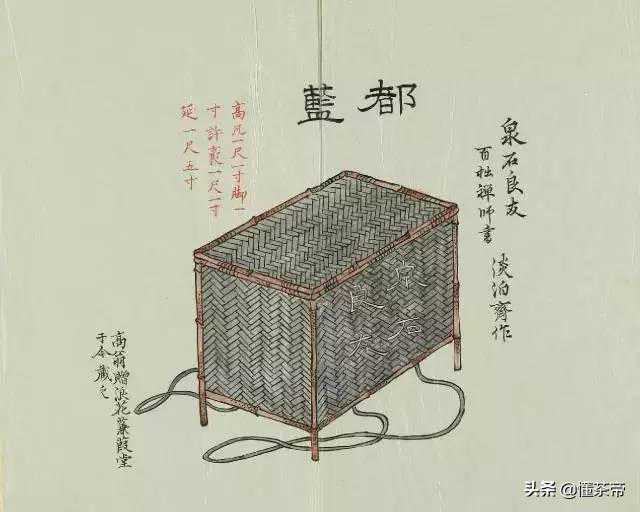 都藍
泉石良友
百拙禪師書
淡泊齋作
高凡一尺一寸脚一
寸許袤一尺一寸
延一尺五寸
泉石
良友
高翁贈浪花蒹葭堂
于今藏之
头条 @懂茶帝